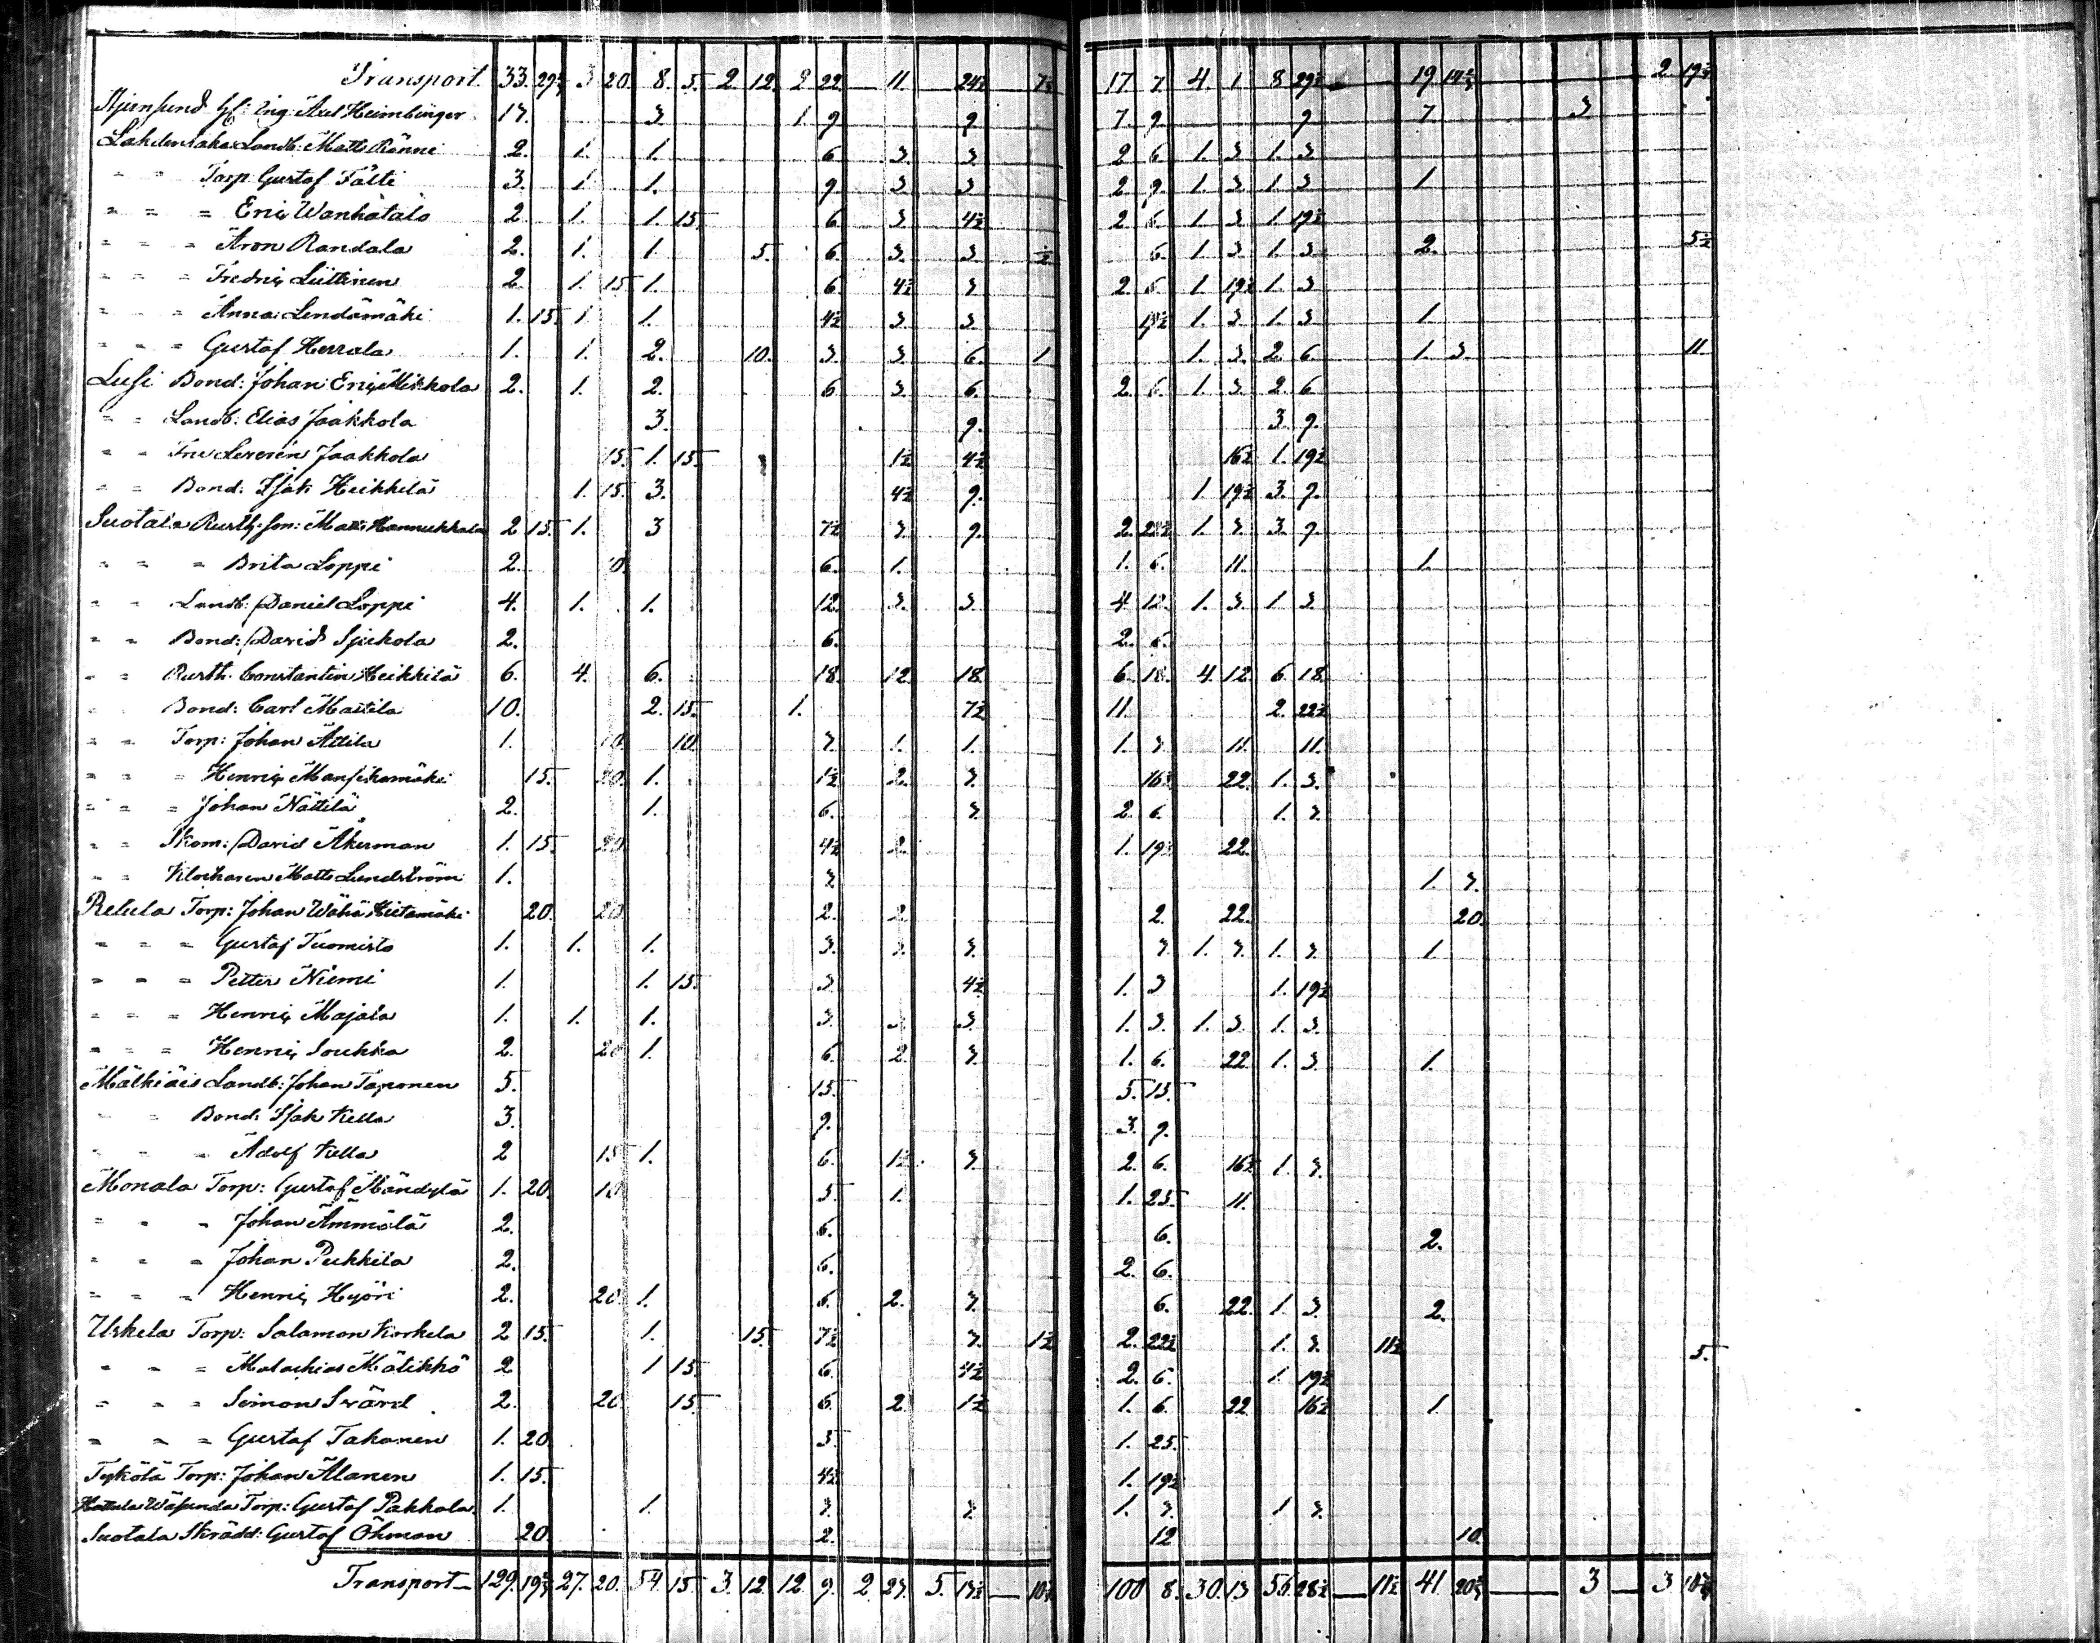 Transport 33. 29¾ 3 20. 8. 5. 2 12. 2 22. 11 24½ 7½ 17 7. 4. 1 8 29½ 19 14¾ 2 19¾
Hf: Ing: Axel Heimbürger 17. 3 1. 9 9 7. 9. 9 7 3
Lahdentaka Landb: Matts Ränni 2. 1. 1. 6 3. 3 2 6. 1. 3 1. 3.
" " Torp. Gustaf Tälli 3. 1 1. 9 3 3 2 9. 1. 3. 1 3 1
" " " Eric Wanhatalo 2. 1. 1. 15. 6 3 4½ 2 6. 1 3 1. 19½
" " " Aron Randala 2. 1. 1 5. 6. 3. 3. ½ 6. 1 3 1. 3. 2. 5½
" " " Fredric Liittinen 2 1. 15 1. 6. 4½ 3 2 6. 1. 19½ 1. 3
" " " Anna Lendämäki 1. 15. 1 1. 4½ 3 3 19½ 1. 3. 1. 3 1.
" " " Gustaf Herrala 1. 1. 2. 10. 3. 3 6. 1 1. 3. 2 6 1. 3 11
Lusi Bond: Johan Eric Mikkola 2. 1. 2. 6 3. 6. 2. 6. 1. 3. 2 6
" " Landb: Elias Jaakkola 3. 9. 3. 9.
" " Jaakkola 15. 1. 15. 1½ 4½ 16½ 1. 19½
" " Bond: Isak Heikkilä 1. 15. 3. 4½ 9. 1 19½ 3. 9.
Suotala Rusth: son: Matts Hannukkala 2 15. 1. 3 7½ 3. 9. 2. 22½ 1. 3. 3. 9.
" " " Brita Loppi 2. 10. 6. 1. 1. 6. 11. 1.
" " Landb: Daniel Loppi 4. 1. 1. 12. 3. 3 4 12. 1. 3 1 3.
" " Bond: David Sjukola 2. 6. 2. 6.
" " Rusth. Constantin Heikkilä 6. 4. 6. 18. 12. 18. 6. 18. 4. 12. 6. 18.
" " Bond: Carl Mattila 10. 2. 15. 1. 7½ 11. 2. 22½
" " Torp: Johan Attila 1. 10. 10. 3. 1. 1. 1. 3. 11. 11.
" " " Henric Mansikamäki 15. 20. 1. 1½ 2. 3. 16½ 22. 1. 3.
" " " Johan Nättilä 2. 1. 6. 3 2. 6. 1. 3.
" " Skom: David Åkerman 1. 15. 20 4½ 2. 1. 19½ 22.
" " Klockaren Matts Lundström 1. 3 1. 3.
Relula Torp: Johan Wähä Hietamäki 20. 20. 2. 2. 2. 22. 20.
" " " Gustaf Tuomisto 1. 1. 1. 3. 3. 3. 3 1. 3. 1. 3. 1
" " " Petter Niemi 1. 1. 15. 3 4½ 1. 3 1. 19½
" " " Henric Majala 1. 1. 1. 3. 3. 3. 1. 3. 1. 3. 1. 3.
" " " Henric Soukka 2. 20 1. 6. 2. 3. 1. 6. 22. 1. 3. 1.
Mälkiäis Landb: Johan Taponen 5. 15. 5. 15.
" " Bond: Isak Kella 3. 9. 3. 9.
" " " Adolf Kella 2 15 1. 6. 1½ 3 2. 6. 16½ 1. 3.
Monala Torp: Gustaf Mändylä 1. 20. 10 5 1. 1. 25. 11.
" " " Johan Ämmälä 2. 6. 6. 2.
" " " Johan Pukkila 2. 6. 2. 6.
" " " Henric Hyöri 2. 20 1. 6. 2. 3. 6. 22. 1. 3. 2.
Urkela Torp: Salamon Korkela 2 15. 1. 15. 7½ 3. 1½ 2. 22½ 1. 3. 11½ 5.
" " " Malachias Mätikkö 2 1 15. 6. 4½ 2. 6. 1 19½
" " " Simon Svärd 2. 20. 15. 6. 2. 1½ 1. 6. 22 16½ 1.
" " " Gustaf Tahonen 1. 20. 5 1. 25.
Tykölä Torp: Johan Alanen 1. 15. 4½ 1. 19½
Hattula Wäsunda Torp: Gustaf Pakkola 1. 1. 3. 3. 1. 3. 1 3.
Suotala Skrädd: Gustaf Öhman 20. 2. 12 10.
Transport 129. 19¾ 27. 20. 54. 15. 3. 12. 12. 9. 2. 27. 5. 13½ — 10¾ 100 8. 30. 13 56 28½ — 11½ 41. 20¾ — 3 — 3. 10¾